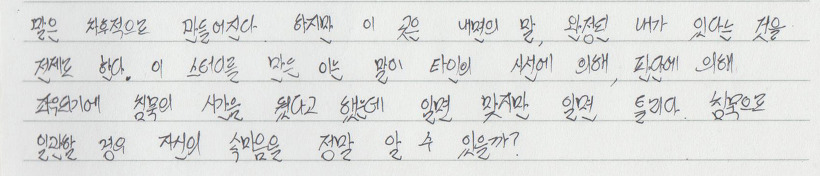 말은 차후적으로 만들어진다. 하지만 이 곳은 내면의 말, 완정된 내가 있다는 것을
전제로 한다. 이 스터디를 만든 이는 말이 타인의 시선에 의해, 판단에 의해
좌우되기에 침묵의 시간을 뒀다고 했는데 일면 맞지만 일면 틀리다. 침묵으로
일관할 경우 자신의 속마음을 정말 알 수 있을까?